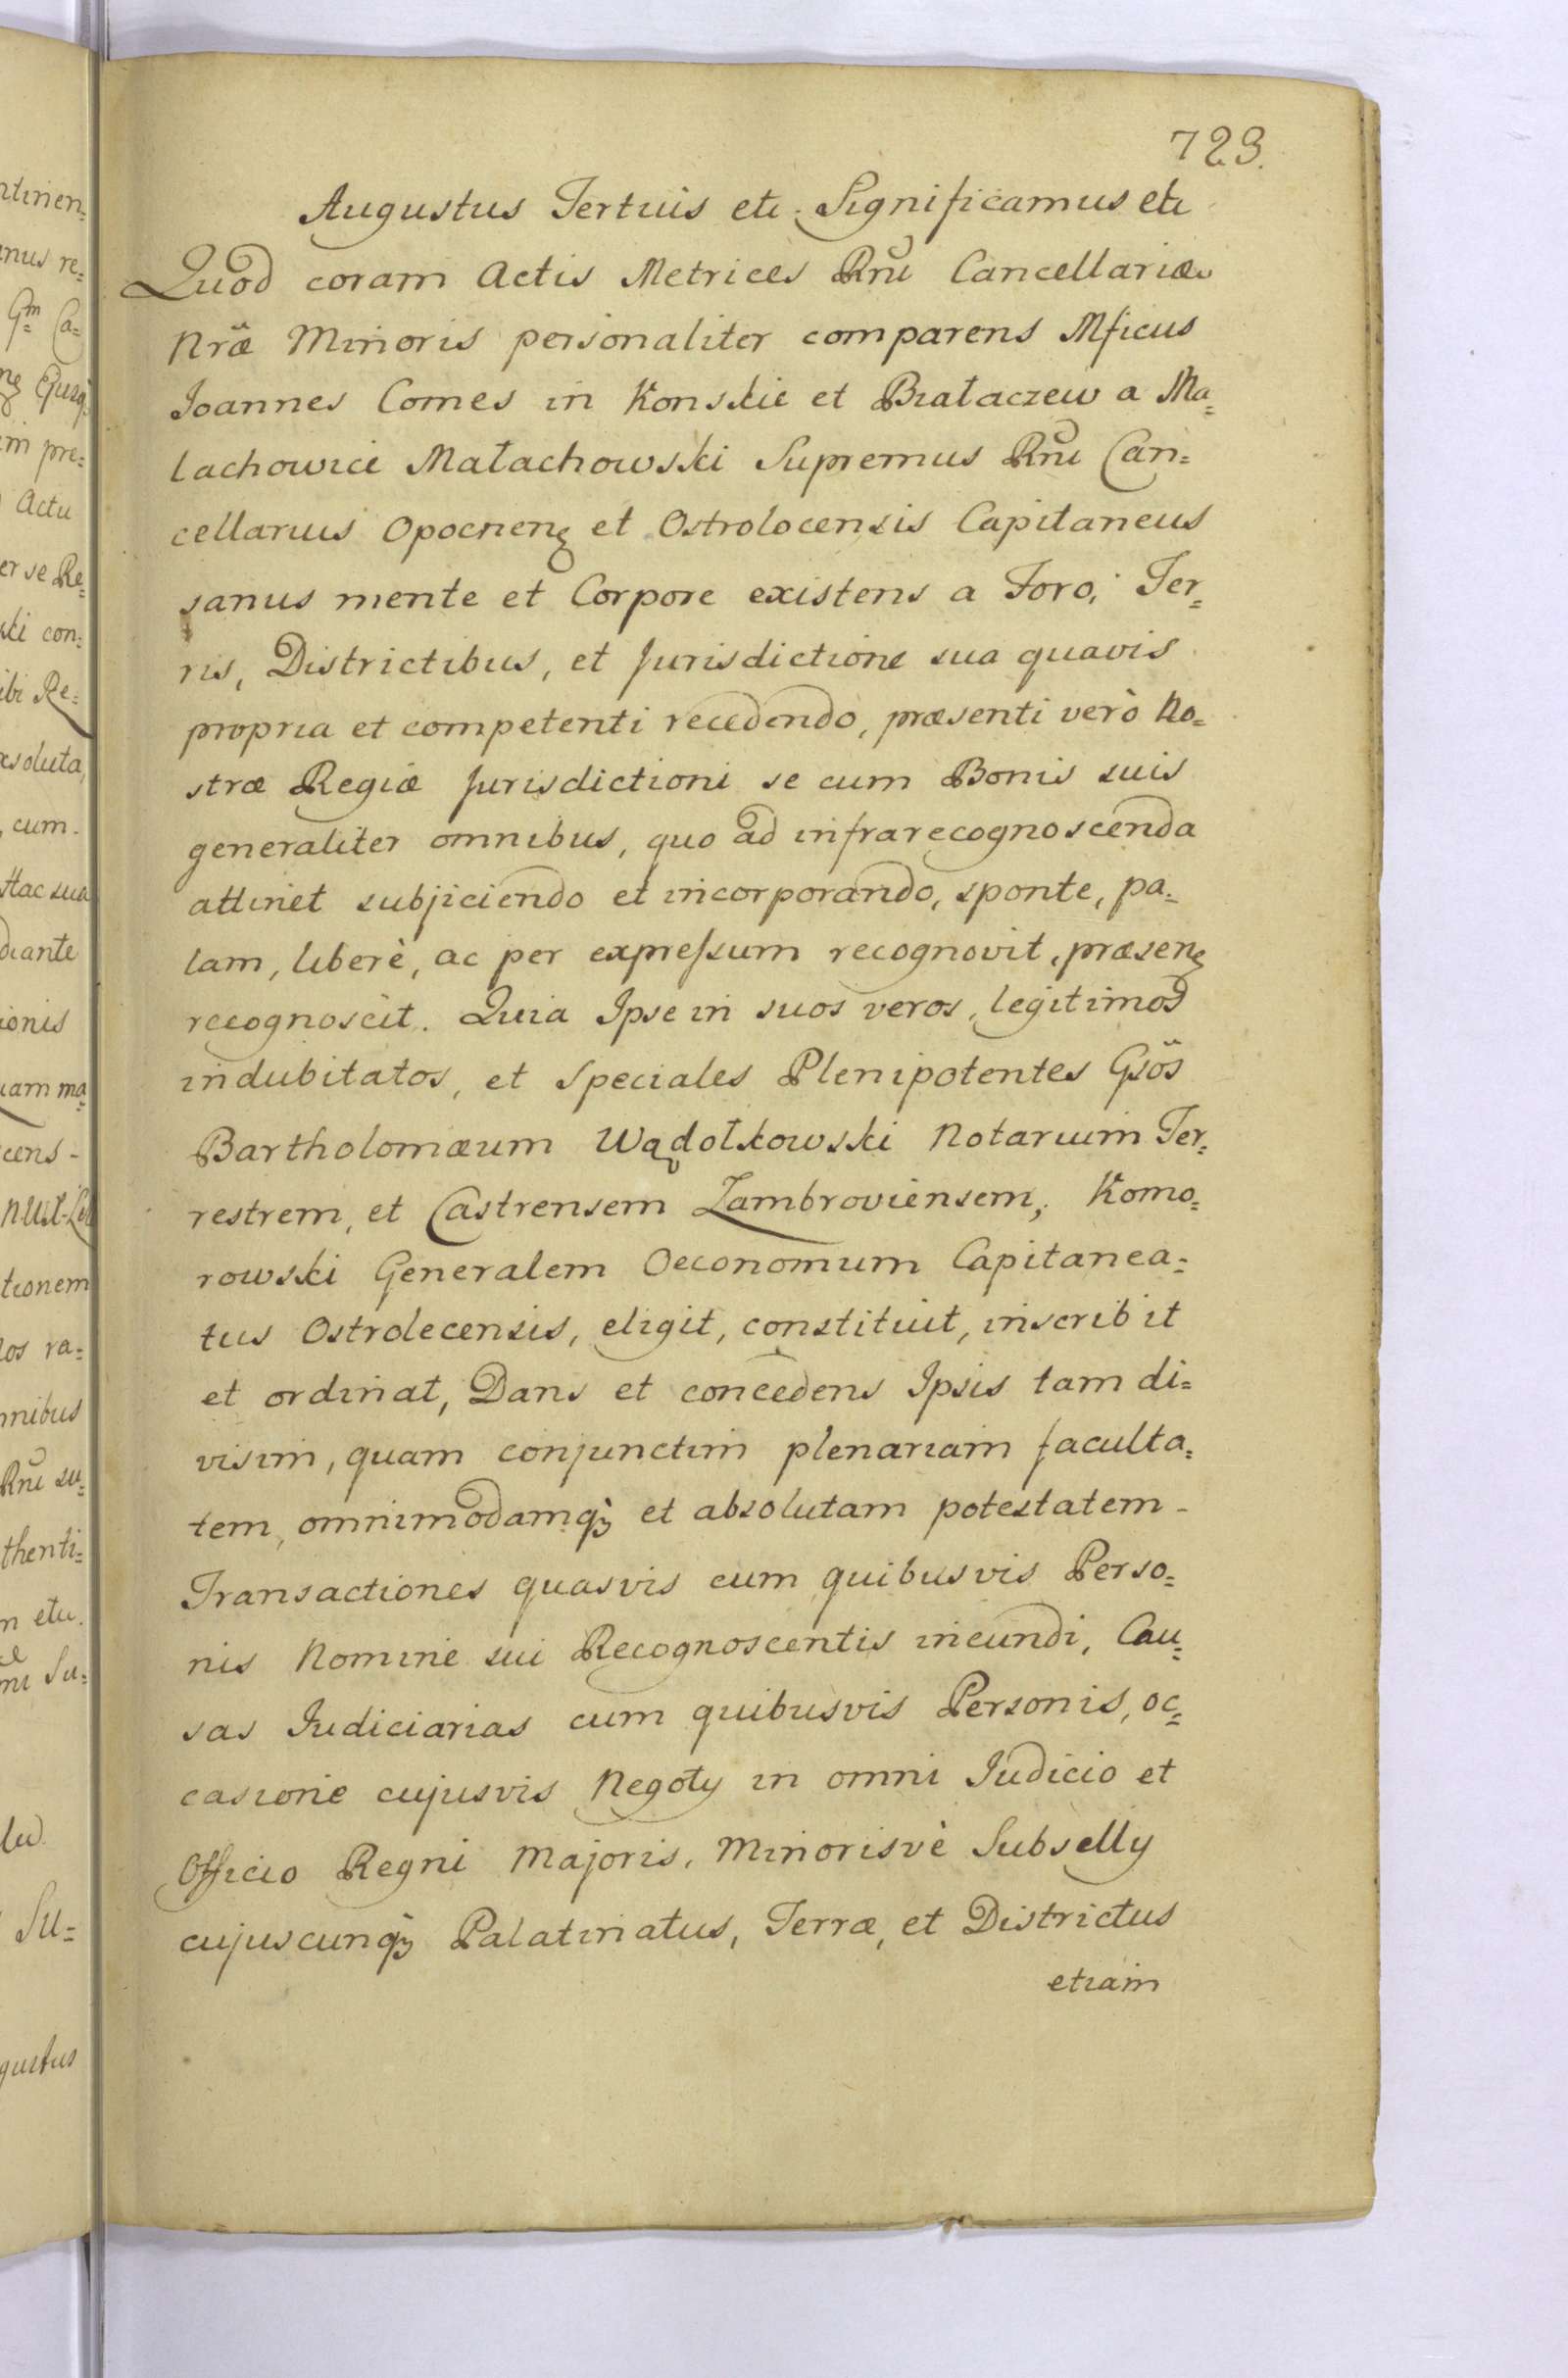 723.
Augustus Tertius etc. Significamus etc
Quod coram Actis Metrices Rñi Cancellariæ
Nrãe Minoris personaliter comparens Mficus
Joannes Comes in Konskie et Białaczew a Ma=
lachowice Małachowski Supremus Rñi Can=
cellarius Opocnenˢ et Ostrolocensis Capitaneus
sanus mente et Corpore existens a Foro, Ter=
ris, Districtibus, et Jurisdictione sua quavis
propria et competenti recedendo, præsenti verò No=
stræ Regiæ Jurisdictioni se cum Bonis suis
generaliter omnibus, quo ad infrarecognoscenda
attinet subjiciendo et incorporando, sponte, pa=
lam, liberè, ac per expressum recognovit, præsenˢ
recognoscit. Quia Ipse in suos veros, legitimos
indubitatos, et Speciales Plenipotentes Gsõs
Bartholomæum Wądołkowski Notarium Ter=
restrem, et Castrensem Zambroviensem, Komo=
rowski Generalem Oeconomum Capitanea=
tus Ostrolecensis, eligit, constituit, inscribit
et ordinat, Dans et concedens Ipsis tam di=
visim, quam conjunctim plenariam faculta=
tem, omnimodamqꝫ et absolutam potestatem-
Transactiones quasvis cum quibusvis Perso=
nis Nomine sui Recognoscentis ineundi, Cau=
sas Judiciarias cum quibusvis Personis, oc=
casione cujusvis Negotÿ in omni Judicio et
Officio Regni Majoris, Minorisvè Subsellÿ
cujuscunqꝫ Palatinatus, Terræ, et Districtus
etiam